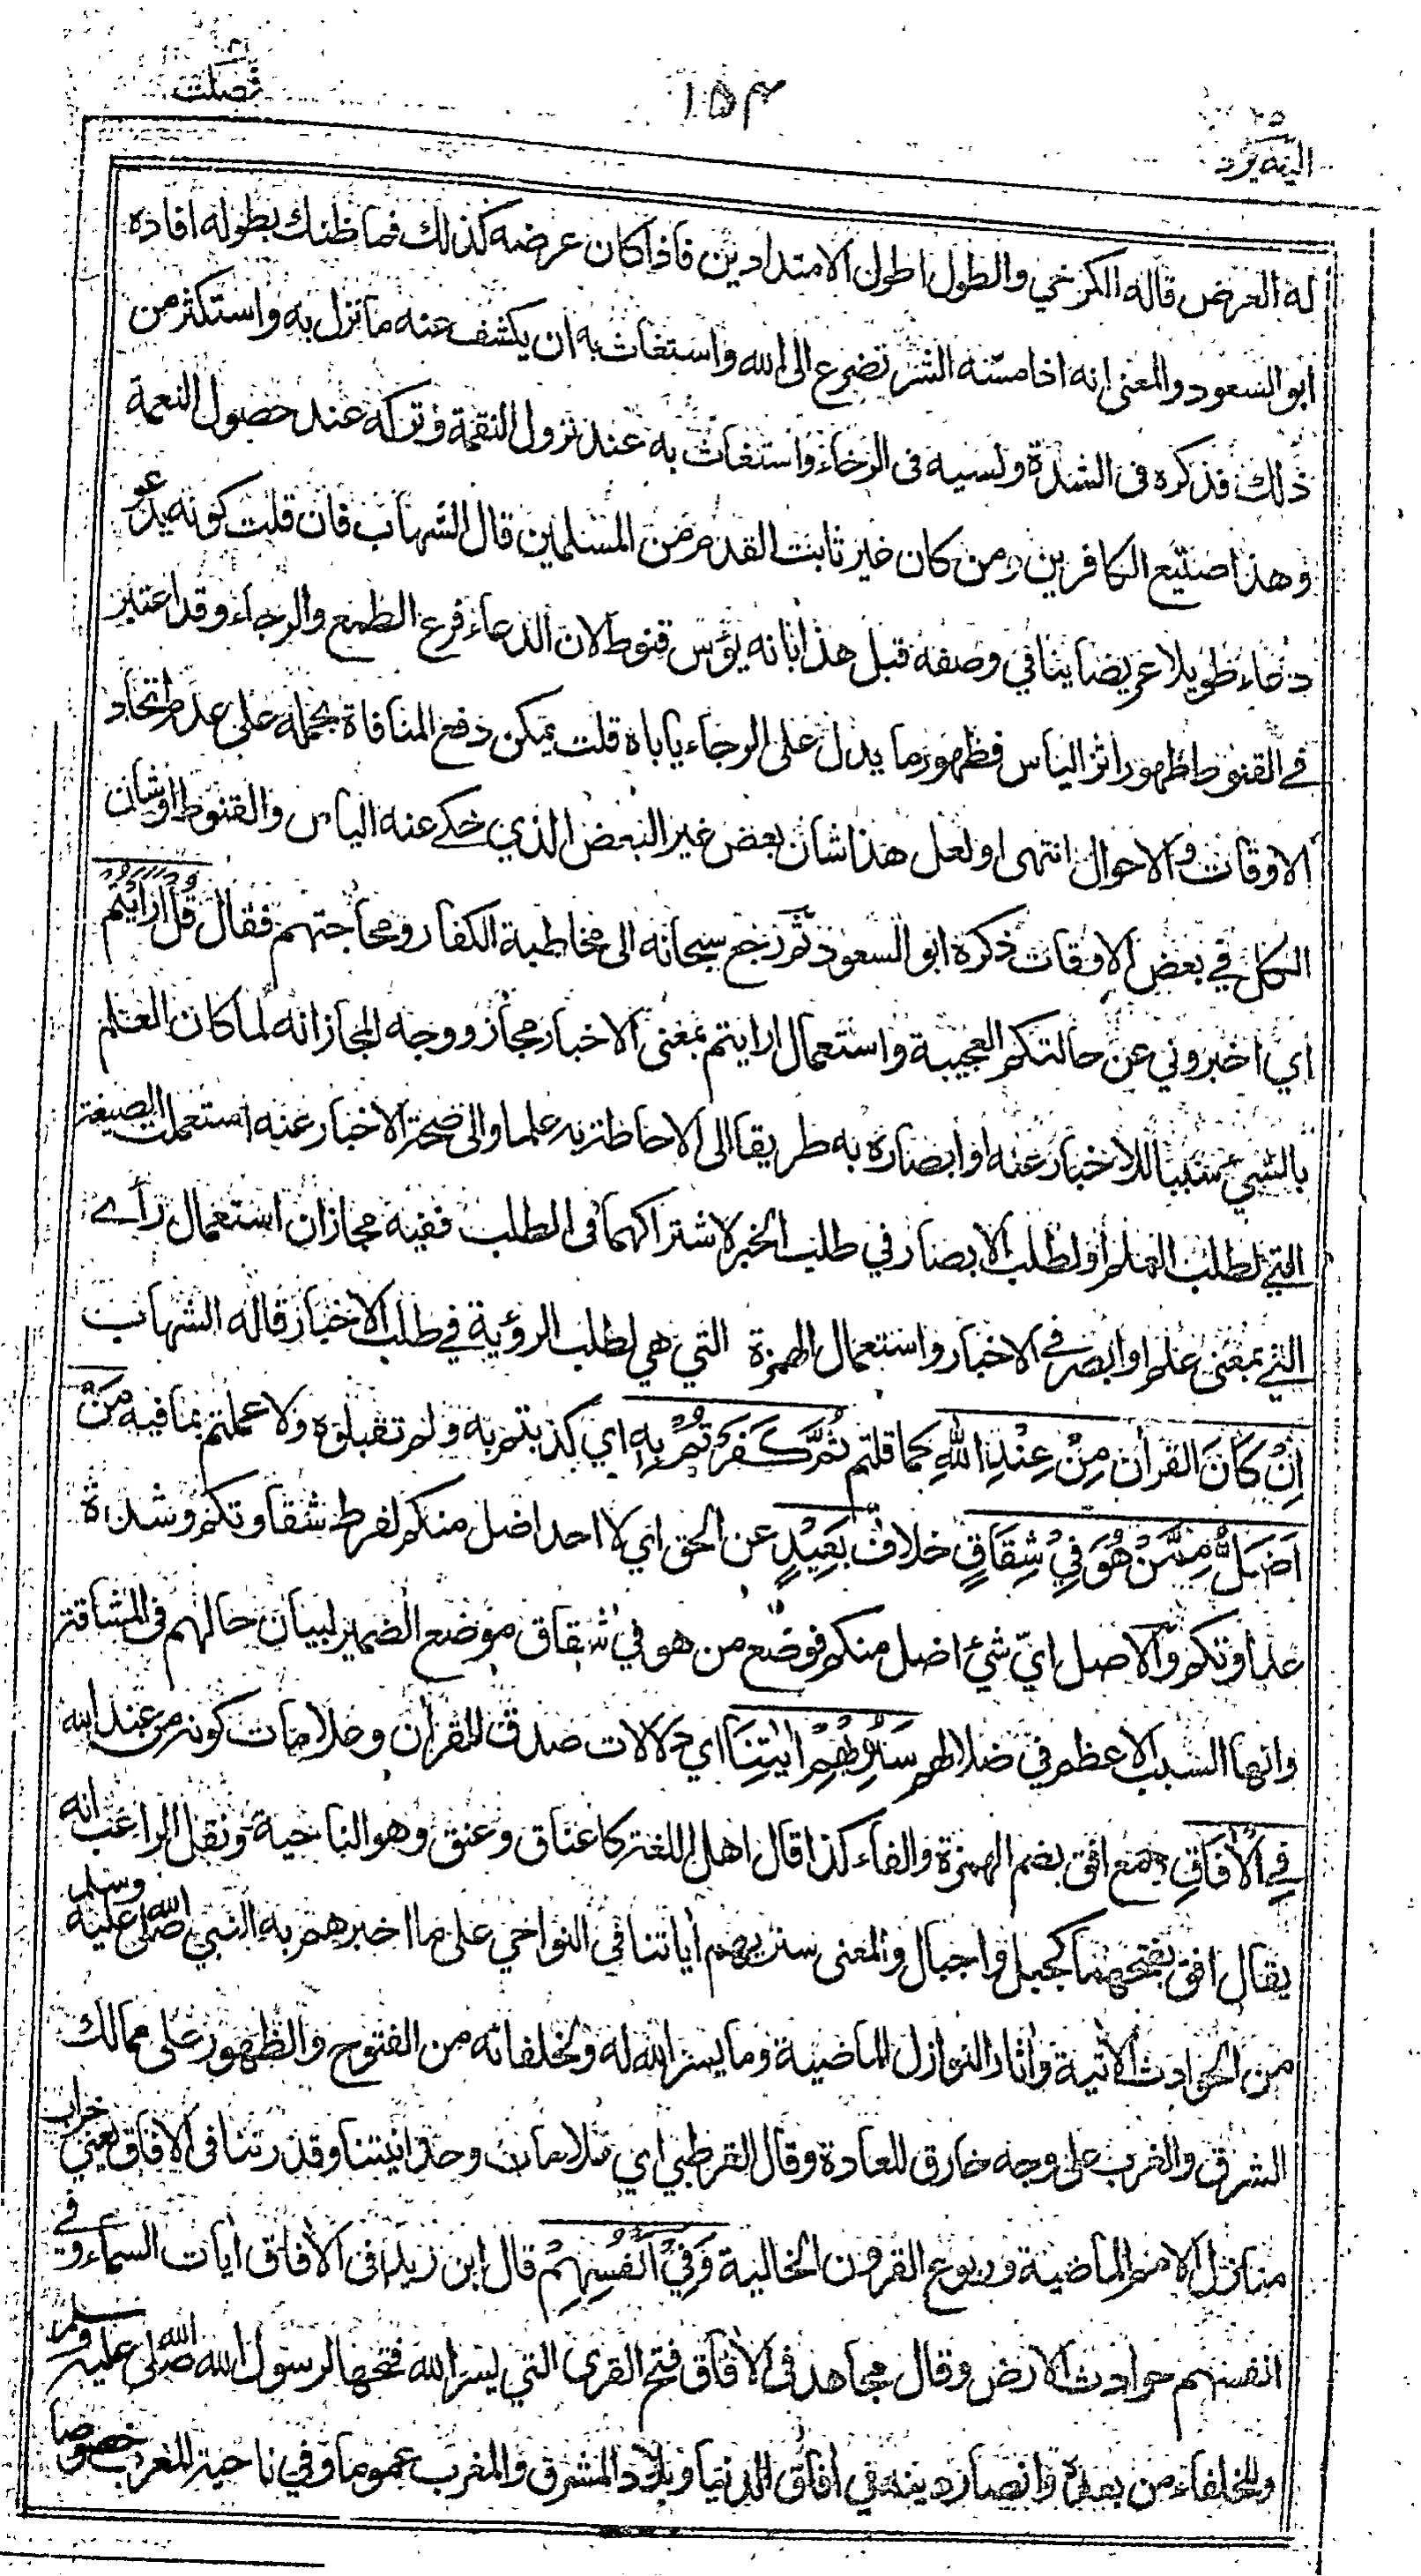 فصلت
١٥٣
٢٥
اليه يرد
له العرض قاله الكرخي والطول اطول الامتدادين فاذا كان عرضه كذلك فما ظنك بطوله افاده
ابو السعود والمعنى انه اذا مسّه الشر تضرع الى الله واستغاث به ان يكشف عنه ما نزل به واستكثر من
ذلك فذكره في الشدة ونسيه في الرخاء واستغاث به عند نزول النقمة وتركه عند حصول النعمة
وهذا صنيع الكافرين ومن كان غير ثابت القدم من المسلمين قال الشهاب فان قلت كونه يدعو
دعاء طويلا عريضا ينافي وصفه قبل هذا بانه يؤس قنوط لان الدعاء فرع الطمع والرجاء وقد اعتبر
في القنوط ظهور اثر الياس فظهور ما يدل على الرجاء ياباه قلت يمكن دفع المنافاة بحمله على عدم اتحاد
الاوقات والاحوال انتهى او لعل هذا شان بعض غير البعض الذي حكي عنه الياس والقنوط او شان
الكل في بعض الاوقات ذكره ابو السعود ثم رجع سبحانه الى مخاطبة الكفار ومحاجتهم فقال قُلْ اَرَاَيْتُمْ
اي اخبروني عن حالتكم العجيبة واستعمال ارايتم بمعنى الاخبار مجاز ووجه المجاز انه لما كان العلم
بالشيء سببا للاخبار عنه او ابصاره به طريقا الى الاحاطة به علما والى صحة الاخبار عنه استعملت الصيغة
التي لطلب العلم او لطلب الابصار في طلب الخبر لاشتراكهما في الطلب ففيه مجازان استعمال رأى
التي بمعنى علم او ابصر في الاخبار واستعمال الهمزة التي هي لطلب الرؤية في طلب الاخبار قاله الشهاب
اِنْ كَانَ القرآن مِنْ عِنْدِ اللهِ كما قلتم ثُمَّ كَفَرْتُمْ بِهِ اي كذبتم به ولم تقبلوه ولا عملتم بما فيه مَنْ
اَضَلُّ مِمَّنْ هُوَ فِيْ شِقَاقٍ خلاف بَعِيْدٍ عن الحق اي لا احد اضل منكم لفرط شقاوتكم وشدة
عداوتكم والاصل ايّ شيء اضل منكم فوضع من هو في شقاق موضع الضمير لبيان حالهم في المشاقة
وانها السبب الاعظم في ضلالهم سَنُرِيْهِمْ اٰيٰتِنَا اي دلالات صدق القرآن وعلامات كونه من عند الله
فِي الْاٰفَاقِ جمع افق بضم الهمزة والفاء كذا قال اهل اللغة كاعناق وعنق وهو الناحية ونقل الراغب انه
يقال افق بفتحهما كجبل واجبال والمعنى سنريهم آياتنا في النواحي على ما اخبرهم به النبي صلى الله عليه وسلم
من الحوادث الآتية وآثار النوازل الماضية وما يسر الله له ولخلفائه من الفتوح والظهور على ممالك
الشرق والغرب على وجه خارق للعادة وقال القرطبي اي علامات وحدانيتنا وقدرتنا في الآفاق يعني خراب
منازل الامم الماضية وربوع القرون الخالية وَفِيْ اَنْفُسِهِمْ قال ابن زيد في الآفاق آيات السماء وفي
انفسهم حوادث الارض وقال مجاهد في الآفاق فتح القرى التي يسر الله فتحها لرسول الله صلى الله عليه وسلم
وللخلفاء من بعده وانصار دينه في آفاق الدنيا وبلاد المشرق والمغرب عموما وفي ناحية المغرب خصوصا